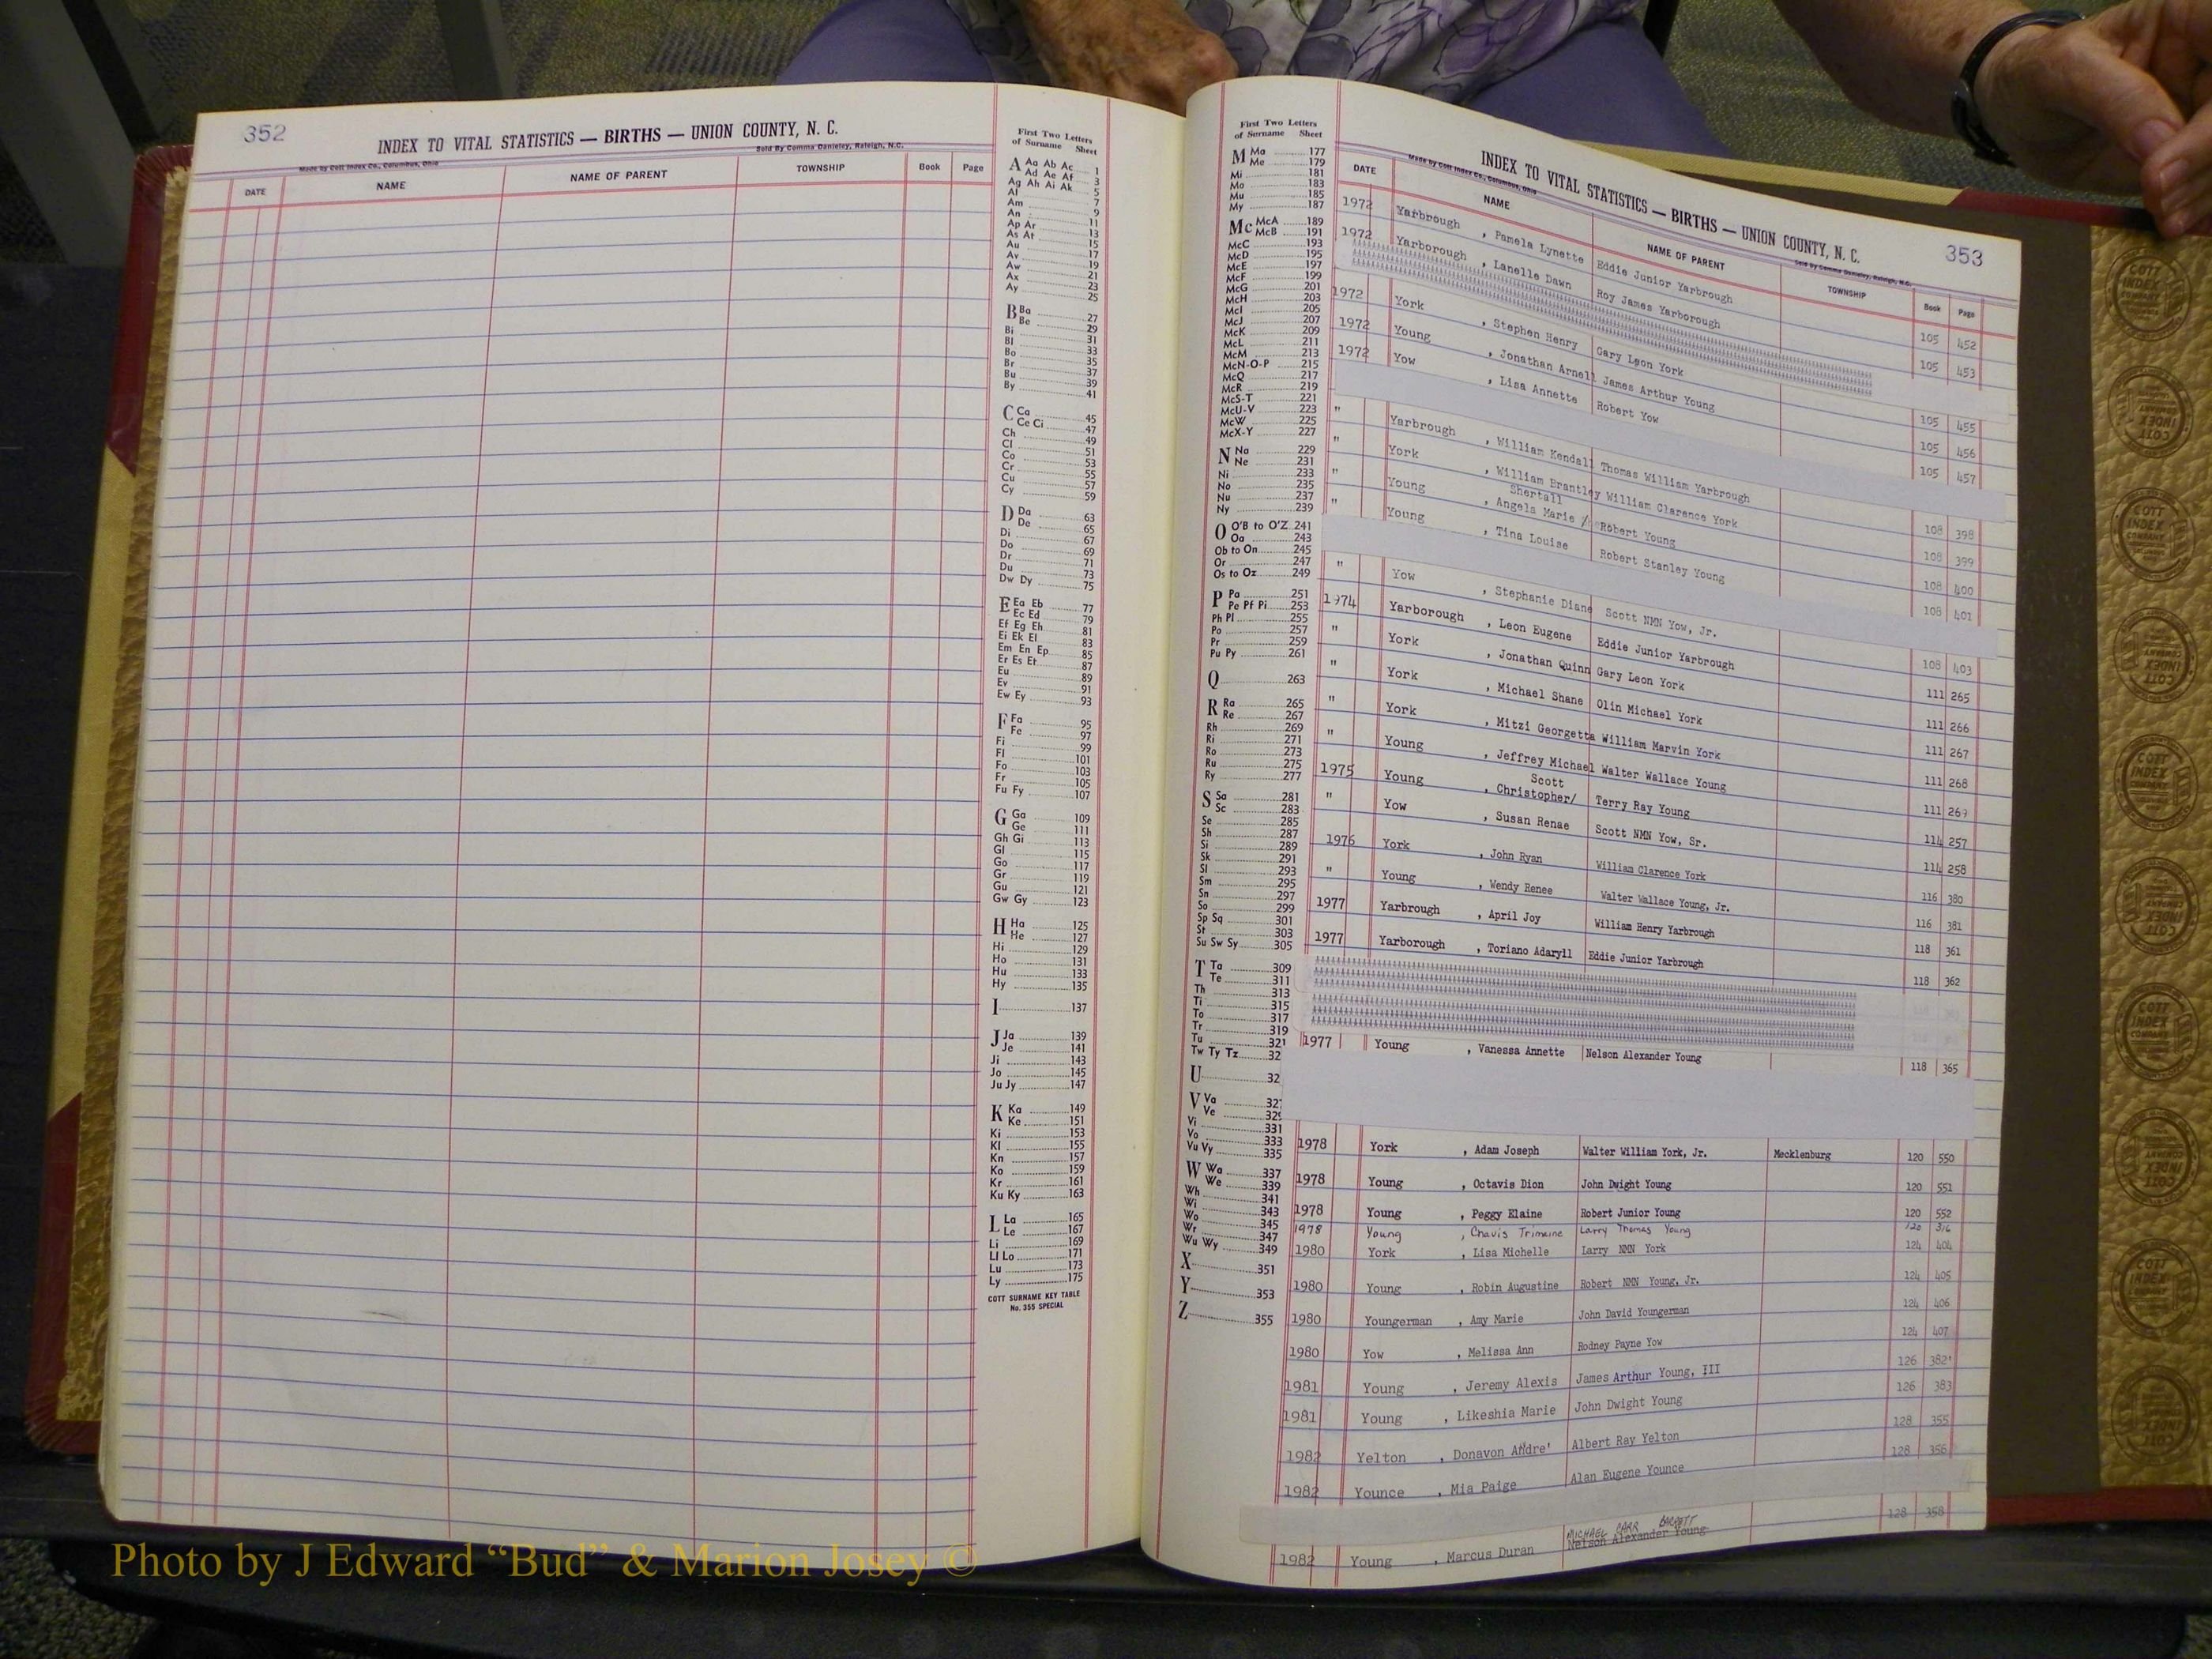 352
INDEX TO VITAL STATISTICS — BIRTHS — UNION COUNTY, N. C.
Made by Cott Index Co., Columbus, Ohio
Sold By Comma Danieley, Raleigh, N.C.
DATE NAME NAME OF PARENT TOWNSHIP Book Page
First Two Letters
of Surname Sheet
A Aa Ab Ac 1
Ad Ae Af 3
Ag Ah Ai Ak 5
Al 7
Am 9
An 11
Ap Ar 13
As At 15
Au 17
Av 19
Aw 21
Ax 23
Ay 25
B Ba 27
Be 29
Bi 31
Bl 33
Bo 35
Br 37
Bu 39
By 41
C Ca 45
Ce Ci 47
Ch 49
Cl 51
Co 53
Cr 55
Cu 57
Cy 59
D Da 63
De 65
Di 67
Do 69
Dr 71
Du 73
Dw Dy 75
E Ea Eb 77
Ec Ed 79
Ef Eg Eh 81
Ei Ek El 83
Em En Ep 85
Er Es Et 87
Eu 89
Ev 91
Ew Ey 93
F Fa 95
Fe 97
Fi 99
Fl 101
Fo 103
Fr 105
Fu Fy 107
G Ga 109
Ge 111
Gh Gi 113
Gl 115
Go 117
Gr 119
Gu 121
Gw Gy 123
H Ha 125
He 127
Hi 129
Ho 131
Hu 133
Hy 135
I 137
J Ja 139
Je 141
Ji 143
Jo 145
Ju Jy 147
K Ka 149
Ke 151
Ki 153
Kl 155
Kn 157
Ko 159
Kr 161
Ku Ky 163
L La 165
Le 167
Li 169
Ll Lo 171
Lu 173
Ly 175
COTT SURNAME KEY TABLE
No. 355 SPECIAL
First Two Letters
of Surname Sheet
M Ma 177
Me 179
Mi 181
Mo 183
Mu 185
My 187
Mc McA 189
McB 191
McC 193
McD 195
McE 197
McF 199
McG 201
McH 203
McI 205
McJ 207
McK 209
McL 211
McM 213
McN-O-P 215
McQ 217
McR 219
McS-T 221
McU-V 223
McW 225
McX-Y 227
N Na 229
Ne 231
Ni 233
No 235
Nu 237
Ny 239
O O'B to O'Z 241
Oa 243
Ob to On 245
Or 247
Os to Oz 249
P Pa 251
Pe Pf Pi 253
Ph Pl 255
Po 257
Pr 259
Pu Py 261
Q 263
R Ra 265
Re 267
Rh 269
Ri 271
Ro 273
Ru 275
Ry 277
S Sa 281
Sc 283
Se 285
Sh 287
Si 289
Sk 291
Sl 293
Sm 295
Sn 297
So 299
Sp Sq 301
St 303
Su Sw Sy 305
T Ta 309
Te 311
Th 313
Ti 315
To 317
Tr 319
Tu 321
Tw Ty Tz 32
U 32
V Va 32
Ve 32
Vi 331
Vo 333
Vu Vy 335
W Wa 337
We 339
Wh 341
Wi 343
Wo 345
Wr 347
Wu Wy 349
X 351
Y 353
Z 355
INDEX TO VITAL STATISTICS — BIRTHS — UNION COUNTY, N. C. 353
Made by Cott Index Co., Columbus, Ohio
Sold By Comma Danieley, Raleigh, N.C.
DATE NAME NAME OF PARENT TOWNSHIP Book Page
1972 Yarbrough , Pamela Lynette Eddie Junior Yarbrough 105 452
1972 Yarborough , Lanelle Dawn Roy James Yarborough 105 453
1972 York , Stephen Henry Gary Leon York 105 455
1972 Young , Jonathan Arnell James Arthur Young 105 456
1972 Yow , Lisa Annette Robert Yow 105 457
" Yarbrough , William Kendall Thomas William Yarbrough 108 398
" York , William Brantley William Clarence York 108 399
Shertall
" Young , Angela Marie / Robert Young 108 400
" Young , Tina Louise Robert Stanley Young 108 401
" Yow , Stephanie Diane Scott NMN Yow, Jr. 108 403
1974 Yarborough , Leon Eugene Eddie Junior Yarbrough 111 265
" York , Jonathan Quinn Gary Leon York 111 266
" York , Michael Shane Olin Michael York 111 267
" York , Mitzi Georgetta William Marvin York 111 268
" Young , Jeffrey Michael Walter Wallace Young 111 269
Scott
1975 Young , Christopher/ Terry Ray Young 114 257
" Yow , Susan Renae Scott NMN Yow, Sr. 114 258
1976 York , John Ryan William Clarence York 116 380
" Young , Wendy Renee Walter Wallace Young, Jr. 116 381
1977 Yarbrough , April Joy William Henry Yarbrough 118 361
1977 Yarborough , Toriano Adaryll Eddie Junior Yarbrough 118 362
1977 Young , Vanessa Annette Nelson Alexander Young 118 365
1978 York , Adam Joseph Walter William York, Jr. Mecklenburg 120 550
1978 Young , Octavis Dion John Dwight Young 120 551
1978 Young , Peggy Elaine Robert Junior Young 120 552
1978 Young , Chavis Trimaine Larry Thomas Young 120 316
1980 York , Lisa Michelle Larry NMN York 124 404
1980 Young , Robin Augustine Robert NMN Young, Jr. 124 405
1980 Youngerman , Amy Marie John David Youngerman 124 406
1980 Yow , Melissa Ann Rodney Payne Yow 124 407
1981 Young , Jeremy Alexis James Arthur Young, III 126 382
1981 Young , Likeshia Marie John Dwight Young 126 383
1982 Yelton , Donavon Andre' Albert Ray Yelton 128 355
1982 Younce , Mia Paige Alan Eugene Younce 128 356
MICHAEL CARR BARRETT
1982 Young , Marcus Duran Nelson Alexander Young 128 358
Photo by J Edward “Bud” & Marion Josey ©